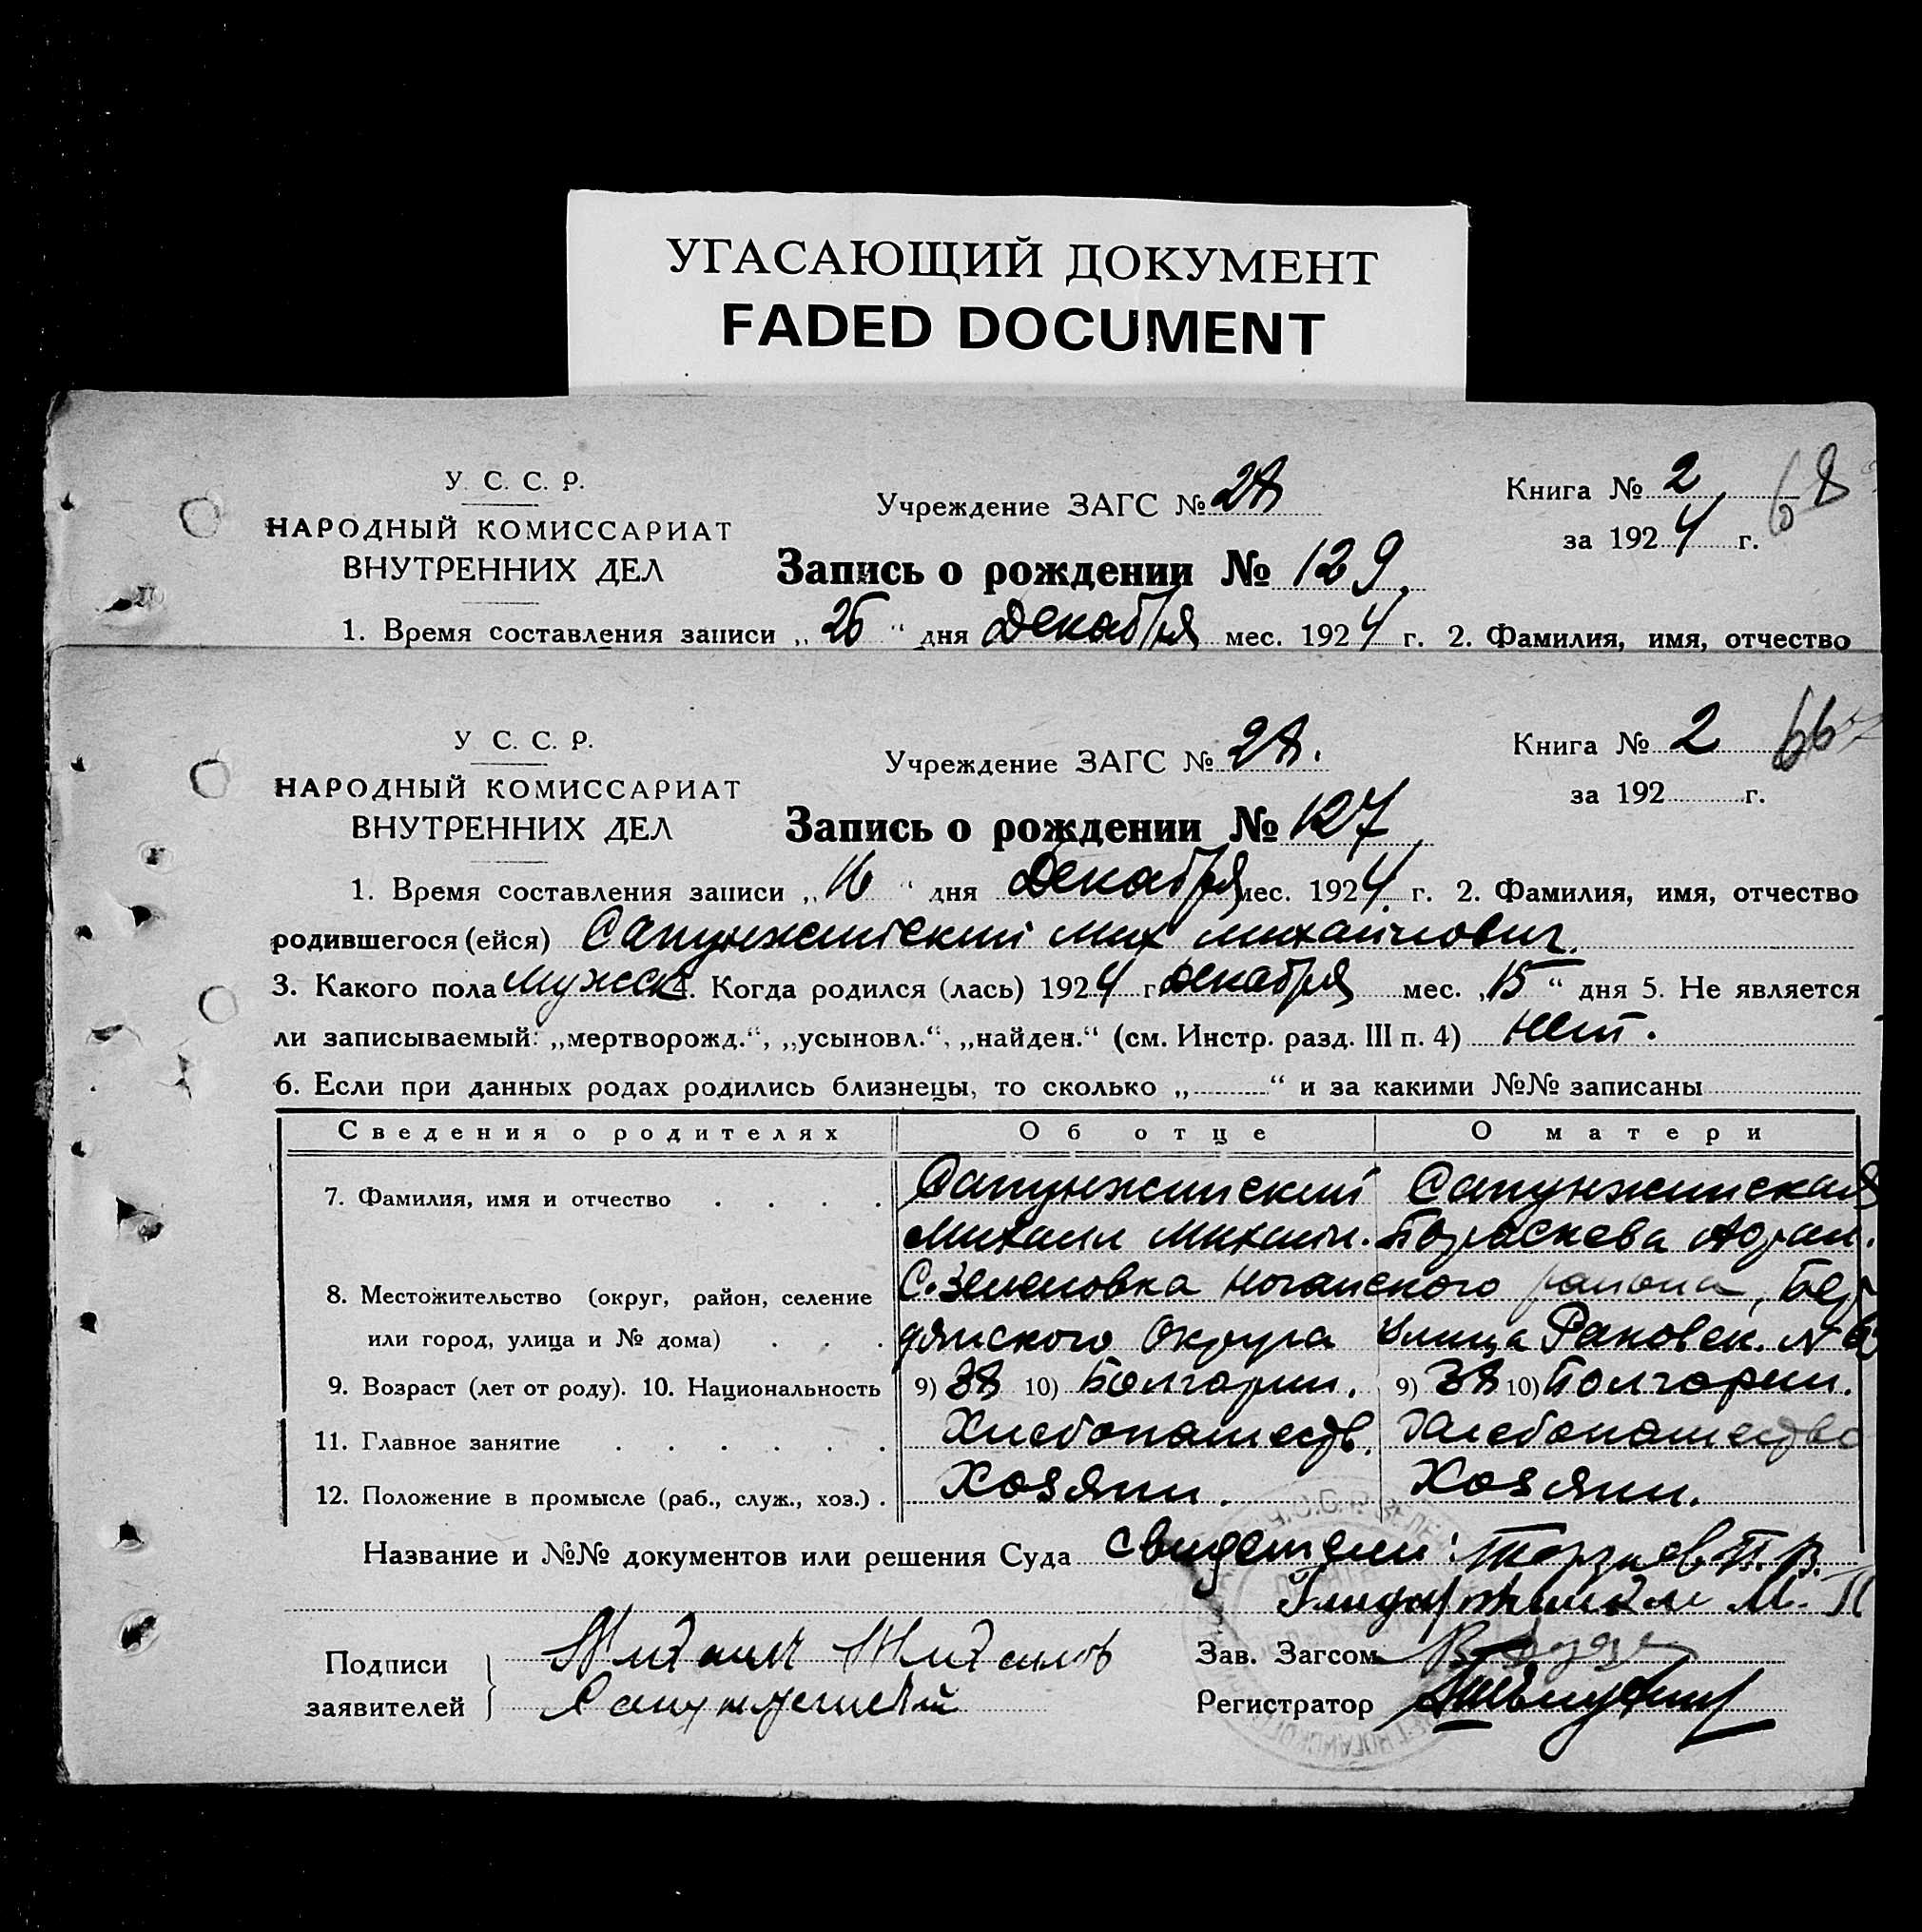 УГАСАЮЩИЙ ДОКУМЕНТ
FADED DOCUMENT
У. С. С. Р.
НАРОДНЫЙ КОМИССАРИАТ
ВНУТРЕННИХ ДЕЛ
Учреждение ЗАГС № 28
Книга № 2
68
за 1924 г.
Запись о рождении № 129.
1. Время составления записи „26“ дня Декабря мес. 1924 г. 2. Фамилия, имя, отчество
У. С. С. Р.
НАРОДНЫЙ КОМИССАРИАТ
ВНУТРЕННИХ ДЕЛ
Учреждение ЗАГС № 28.
Книга № 2
за 192 г.
Запись о рождении № 127
1. Время составления записи „16“ дня Декабря мес. 1924. г. 2. Фамилия, имя, отчество
родившегося (ейся) Сапунжинский Мих Михайлович.
3. Какого пола Мужск. Когда родился (лась) 1924 г Декабря мес. „15“ дня 5. Не является
ли записываемый: „мертворожд.“, „усыновл.“, „найден.“ (см. Инстр. разд. III п. 4) Нет.
6. Если при данных родах родились близнецы, то сколько „ “ и за какими №№ записаны
Сведения о родителях Об отце О матери
7. Фамилия, имя и отчество Сапунжинский Сапунжинская
Михаил Михаил.
8. Местожительство (округ, район, селение С. Зеленовка Ногайского района, Бер
или город, улица и № дома) дянского Округа Улица Раковск. №
9. Возраст (лет от роду). 10. Национальность 9) 38 10) Болгарин. 9) 38 10) Болгарин.
11. Главное занятие Хлебопашеств. Хлебопашество
12. Положение в промысле (раб., служ., хоз.). Хозяин. Хозяин.
Название и №№ документов или решения Суда Свидетели: Терзиев П. В.
М. П
Подписи Михаил Михаилов Зав. Загсом
заявителей Сапунжинский Регистратор